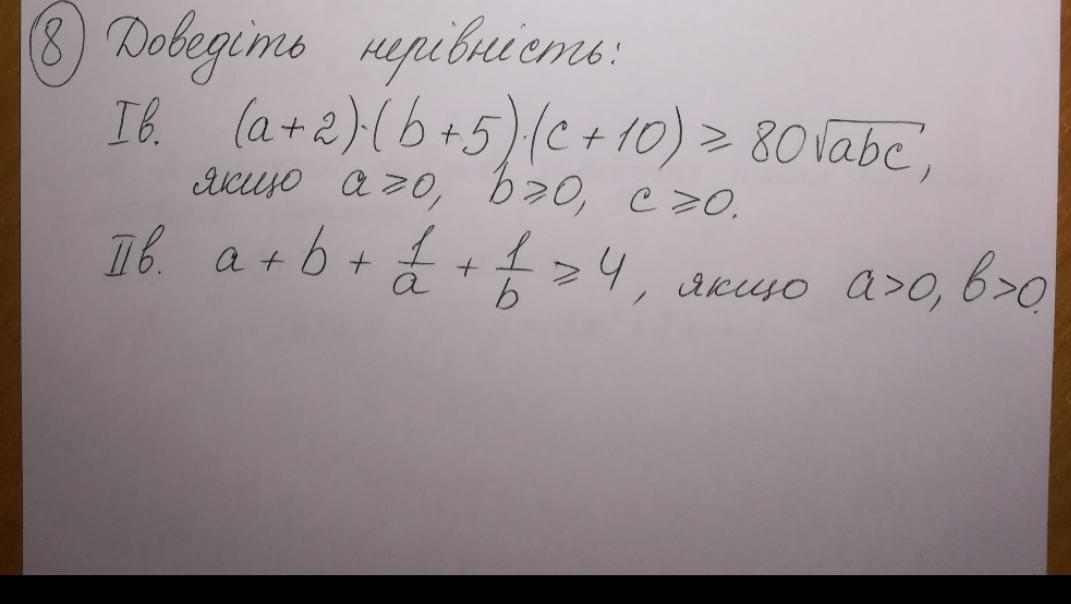 8 Доведіть нерівність:
Ів. (a+2)·(b+5)·(c+10) ≥ 80√abc,
якщо a≥0, b≥0, c≥0.
ІІв. a + b + 1/a + 1/b ≥ 4, якщо a>0, b>0.